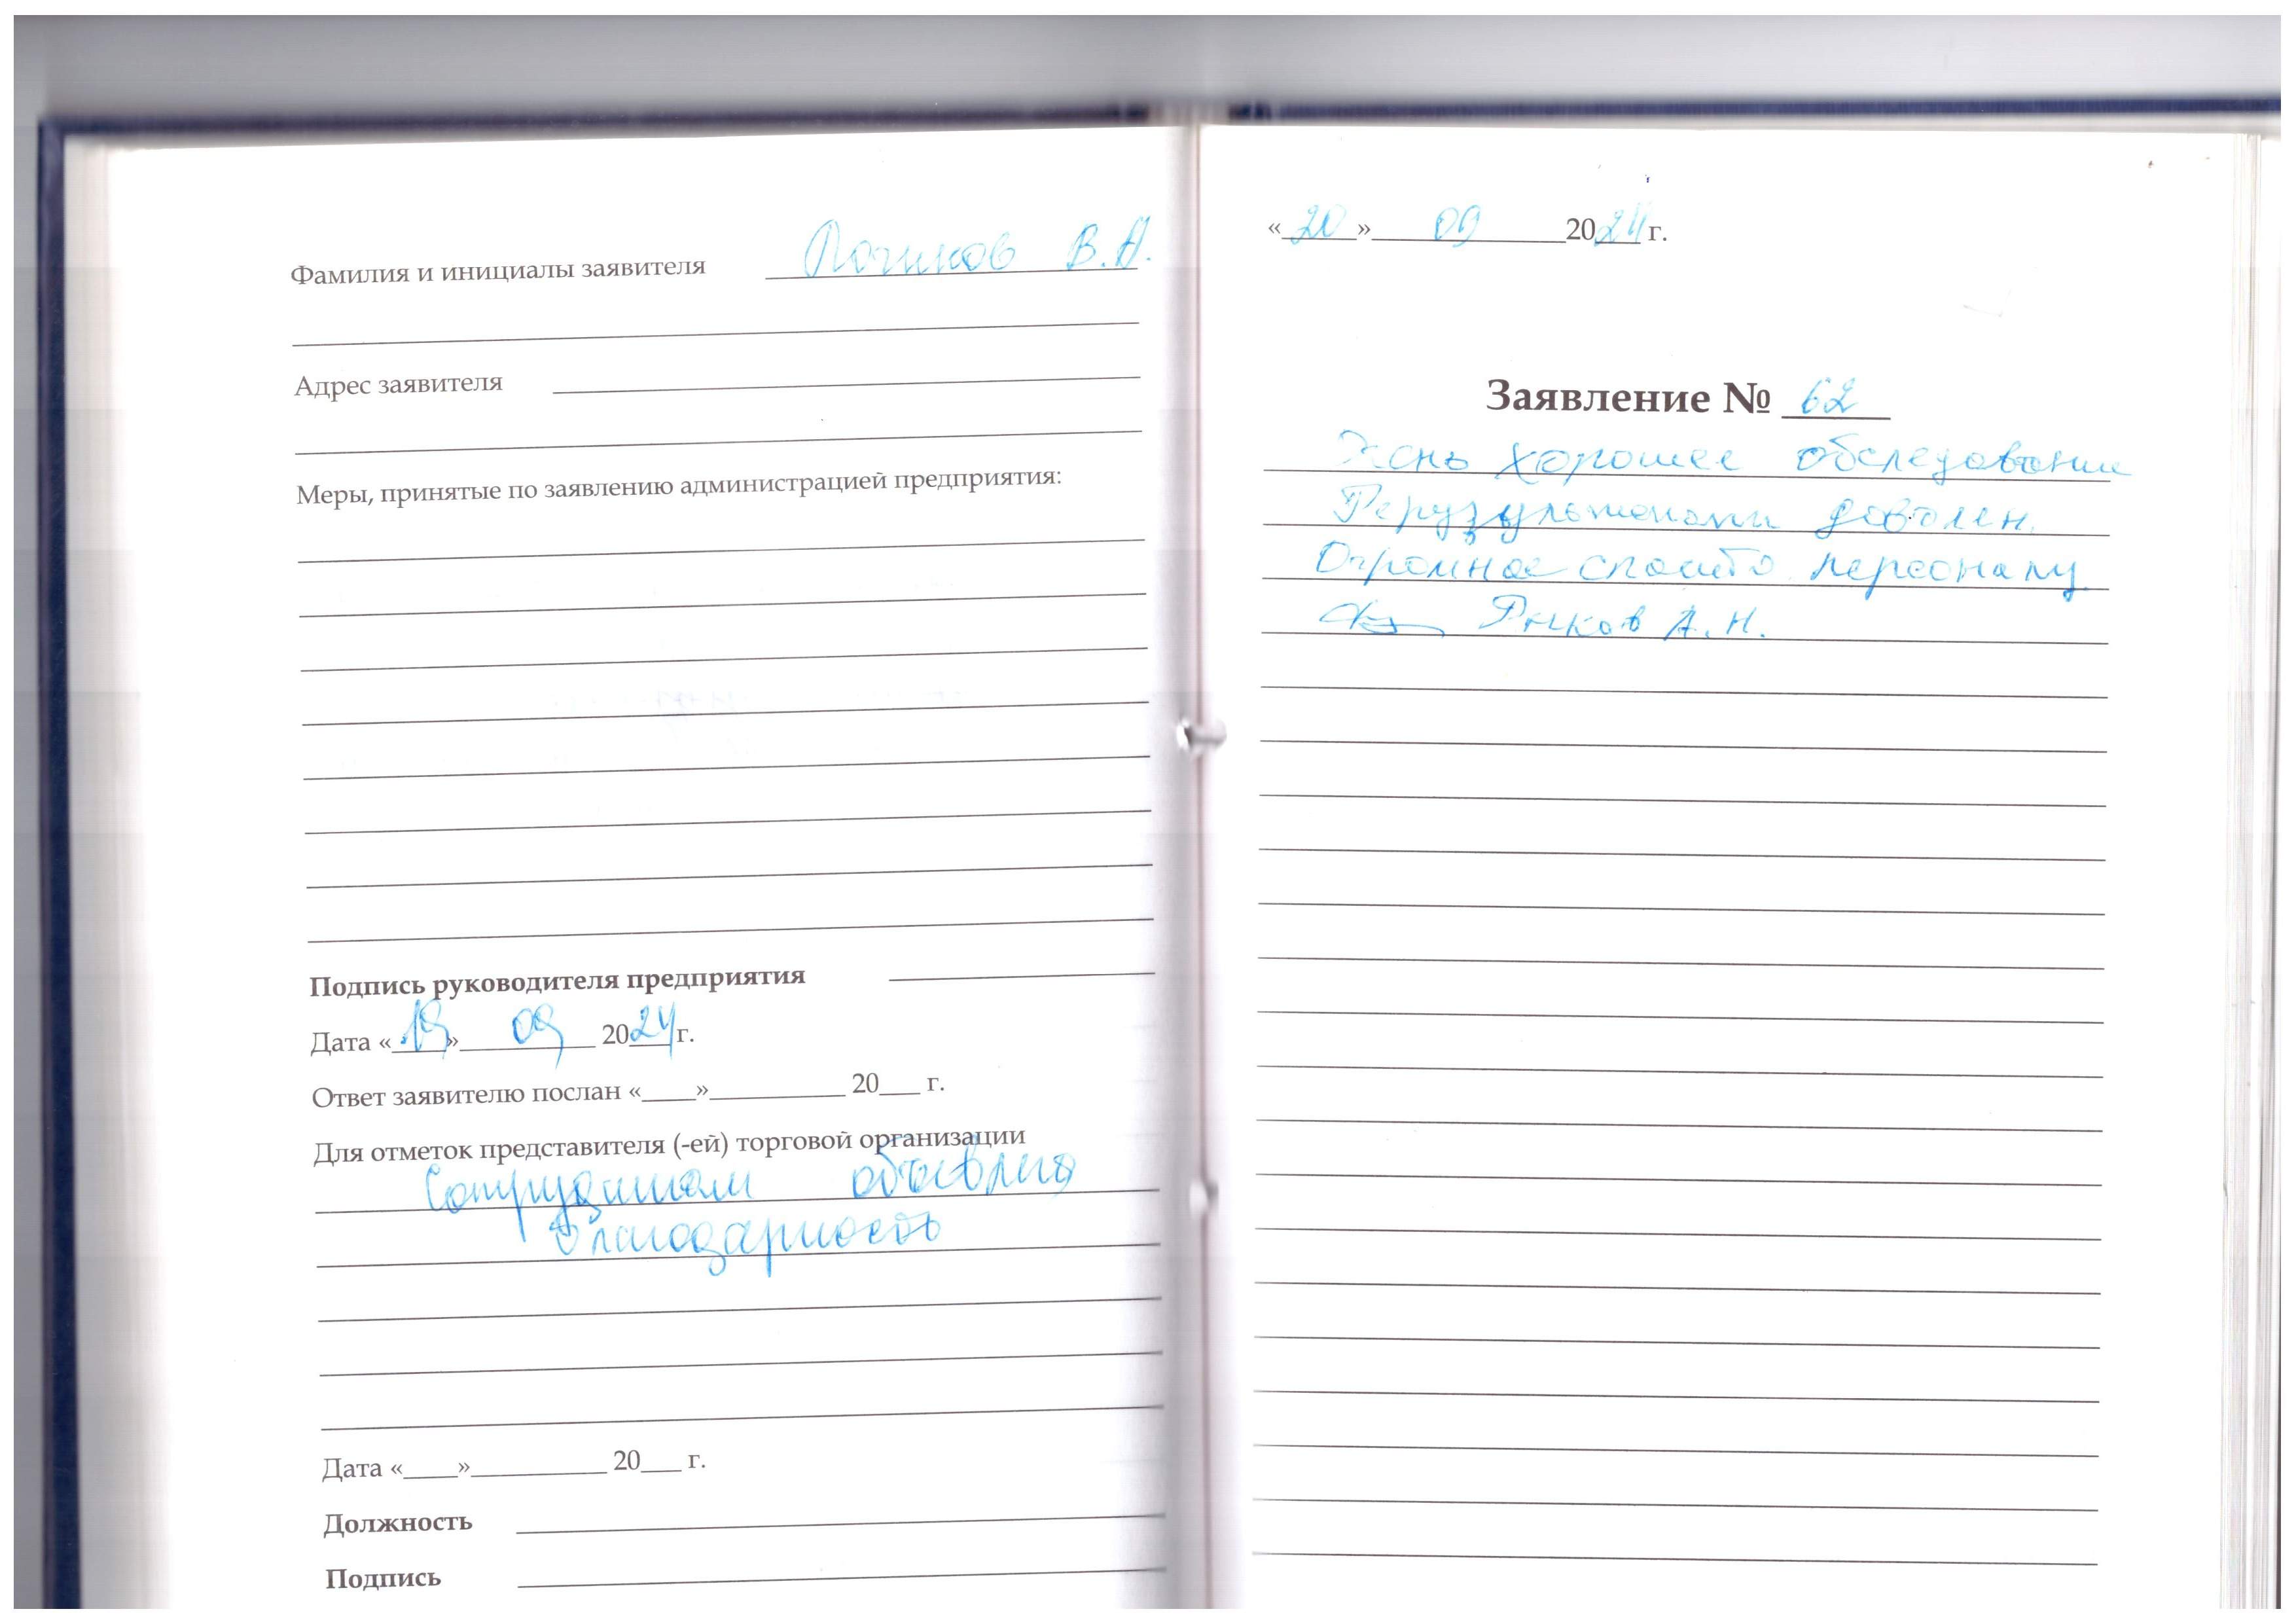 Фамилия и инициалы заявителя В.А.
Адрес заявителя
Меры, принятые по заявлению администрацией предприятия:
Подпись руководителя предприятия
Дата «19» 09 2024 г.
Ответ заявителю послан «____»__________ 20___ г.
Для отметок представителя (-ей) торговой организации
Сотрудникам объявлена
благодарность
Дата «____»__________ 20___ г.
Должность
Подпись
«20» 09 2024 г.
Заявление № 62
хорошее обследование
доволен.
Огромное спасибо персоналу.
Рыков А.Н.